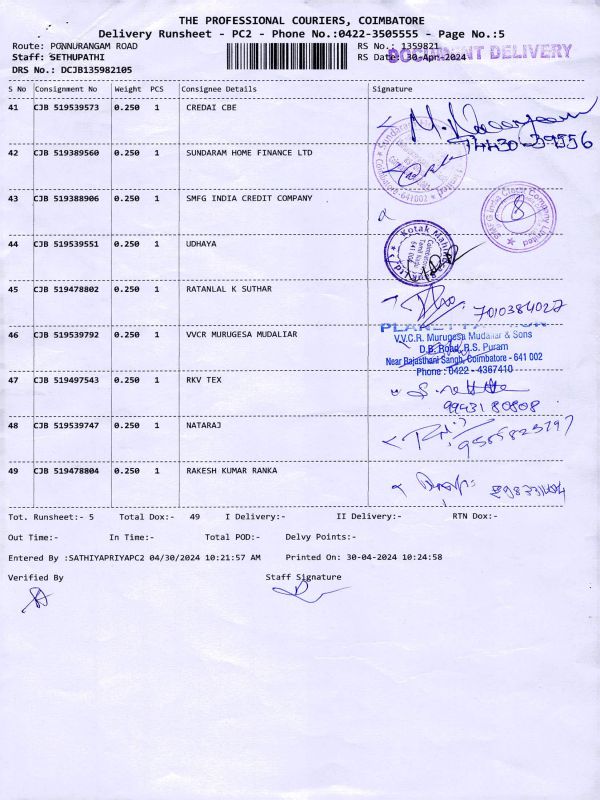 THE PROFESSIONAL COURIERS, COIMBATORE
Delivery Runsheet - PC2 - Phone No.:0422-3505555 - Page No.:5
Route: PONNURANGAM ROAD
RS No.: 1359821
DOCUMENT DELIVERY
Staff: SETHUPATHI
RS Date: 30-Apr-2024
DRS No.: DCJB135982105
S No Consignment No Weight PCS Consignee Details Signature
41 CJB 519539573 0.250 1 CREDAI CBE
74430-39556
42 CJB 519389560 0.250 1 SUNDARAM HOME FINANCE LTD
43 CJB 519388906 0.250 1 SMFG INDIA CREDIT COMPANY
44 CJB 519539551 0.250 1 UDHAYA
45 CJB 519478802 0.250 1 RATANLAL K SUTHAR
7010384027
46 CJB 519539792 0.250 1 VVCR MURUGESA MUDALIAR
V.V.C.R. Murugesa Mudaliar & Sons
D.B. Road, R.S. Puram
Near Rajasthani Sangh, Coimbatore - 641 002
Phone : 0422 - 4367410
47 CJB 519497543 0.250 1 RKV TEX
99431 80808
48 CJB 519539747 0.250 1 NATARAJ
49 CJB 519478804 0.250 1 RAKESH KUMAR RANKA
Tot. Runsheet:- 5 Total Dox:- 49 I Delivery:- II Delivery:- RTN Dox:-
Out Time:- In Time:- Total POD:- Delvy Points:-
Entered By :SATHIYAPRIYAPC2 04/30/2024 10:21:57 AM Printed On: 30-04-2024 10:24:58
Verified By Staff Signature